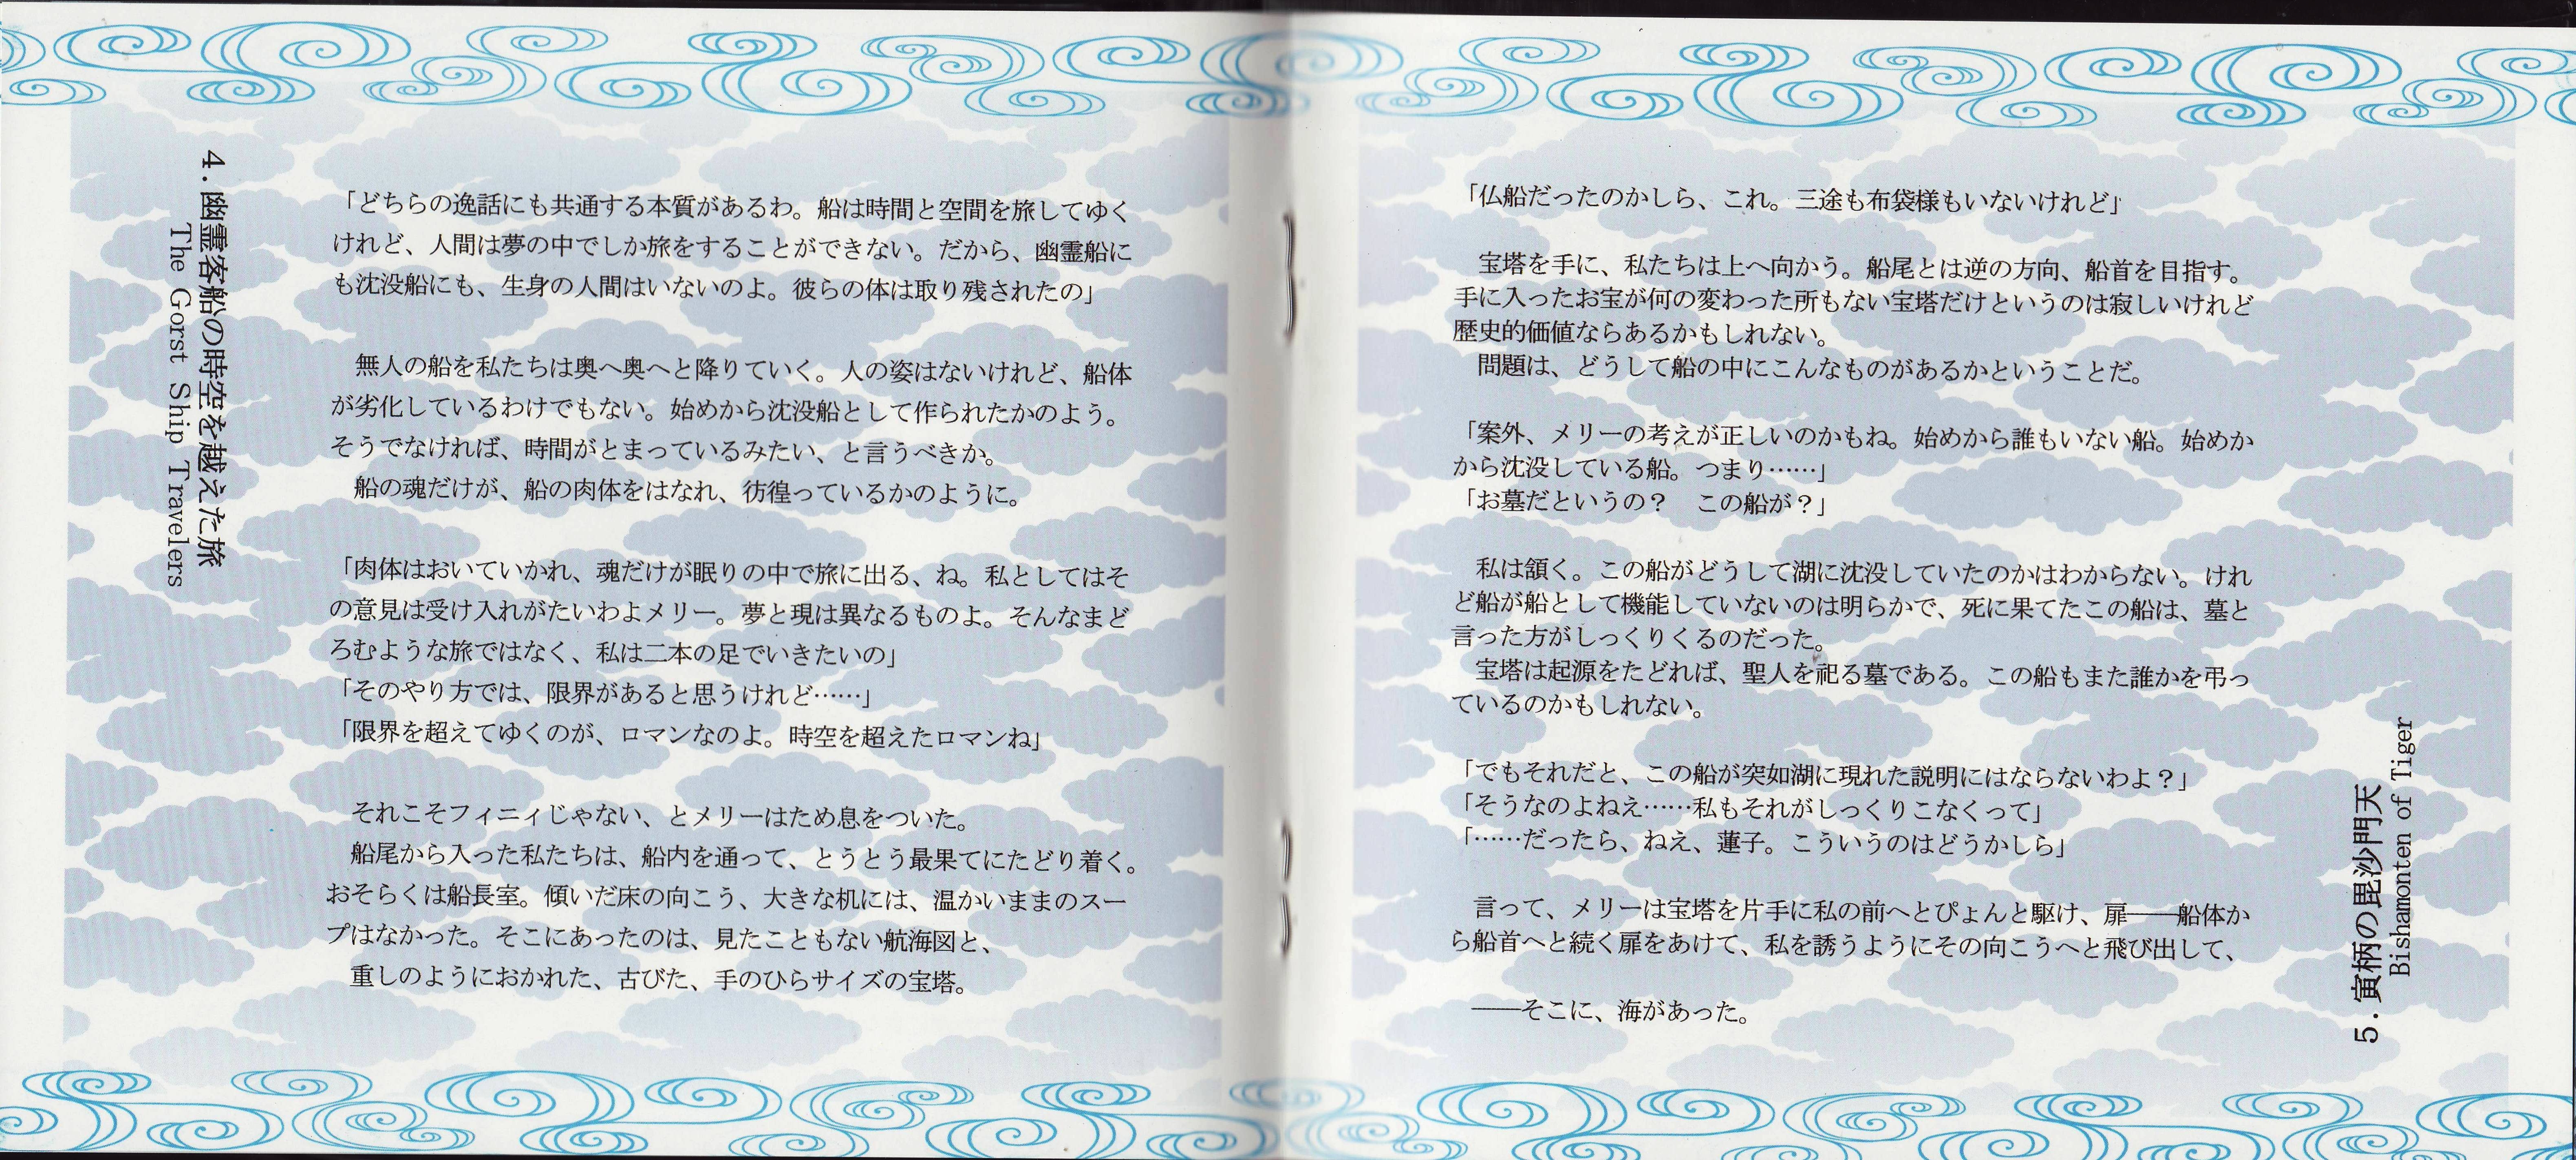 4. 幽霊客船の時空を越えた旅
The Gorst Ship Travelers
「どちらの逸話にも共通する本質があるわ。船は時間と空間を旅してゆく
けれど、人間は夢の中でしか旅をすることができない。だから、幽霊船に
も沈没船にも、生身の人間はいないのよ。彼らの体は取り残されたの」
無人の船を私たちは奥へ奥へと降りていく。人の姿はないけれど、船体
が劣化しているわけでもない。始めから沈没船として作られたかのよう。
そうでなければ、時間がとまっているみたい、と言うべきか。
船の魂だけが、船の肉体をはなれ、彷徨っているかのように。
「肉体はおいていかれ、魂だけが眠りの中で旅に出る、ね。私としてはそ
の意見は受け入れがたいわよメリー。夢と現は異なるものよ。そんなまど
ろむような旅ではなく、私は二本の足でいきたいの」
「そのやり方では、限界があると思うけれど……」
「限界を超えてゆくのが、ロマンなのよ。時空を超えたロマンね」
それこそフィニィじゃない、とメリーはため息をついた。
船尾から入った私たちは、船内を通って、とうとう最果てにたどり着く。
おそらくは船長室。傾いだ床の向こう、大きな机には、温かいままのスー
プはなかった。そこにあったのは、見たこともない航海図と、
重しのようにおかれた、古びた、手のひらサイズの宝塔。
「仏船だったのかしら、これ。三途も布袋様もいないけれど」
宝塔を手に、私たちは上へ向かう。船尾とは逆の方向、船首を目指す。
手に入ったお宝が何の変わった所もない宝塔だけというのは寂しいけれど
歴史的価値ならあるかもしれない。
問題は、どうして船の中にこんなものがあるかということだ。
「案外、メリーの考えが正しいのかもね。始めから誰もいない船。始めか
から沈没している船。つまり……」
「お墓だというの？　この船が？」
私は頷く。この船がどうして湖に沈没していたのかはわからない。けれ
ど船が船として機能していないのは明らかで、死に果てたこの船は、墓と
言った方がしっくりくるのだった。
宝塔は起源をたどれば、聖人を祀る墓である。この船もまた誰かを弔っ
ているのかもしれない。
「でもそれだと、この船が突如湖に現れた説明にはならないわよ？」
「そうなのよねえ……私もそれがしっくりこなくって」
「……だったら、ねえ、蓮子。こういうのはどうかしら」
言って、メリーは宝塔を片手に私の前へとぴょんと駆け、扉――船体か
ら船首へと続く扉をあけて、私を誘うようにその向こうへと飛び出して、
――そこに、海があった。
5. 寅柄の毘沙門天
Bishamonten of Tiger